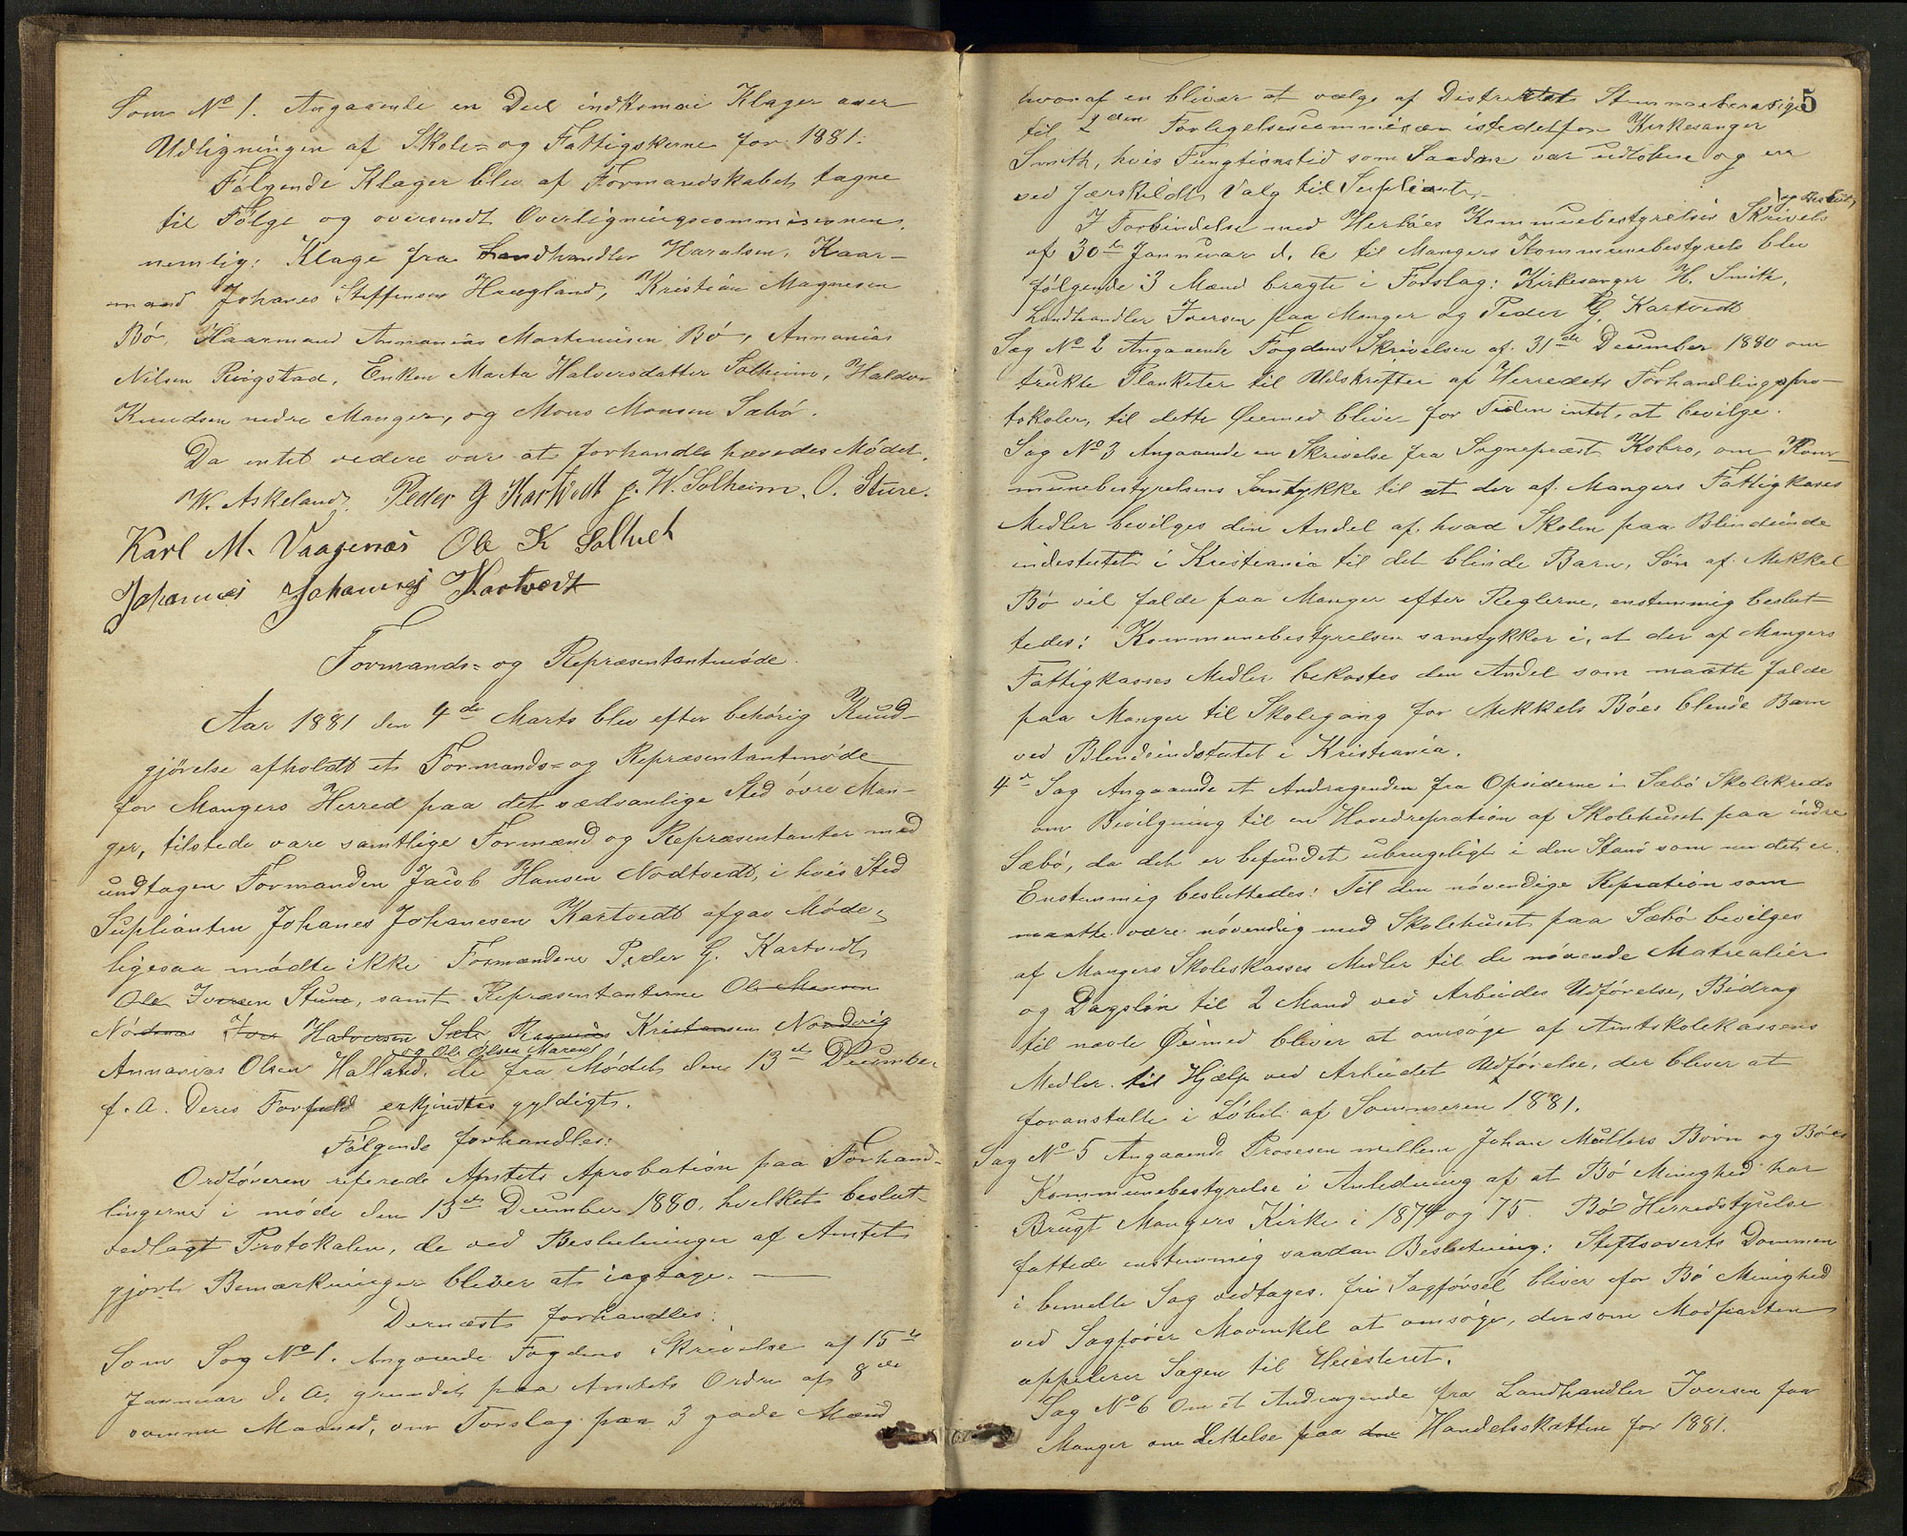 Som No 1. Angaaende en Deel indkomne Klager over
Udligningen af Skole- og Fattigskerne for 1881.
Følgende Klager blev af Formandskabet tagne
til Følge og oversendt Overligningscommisionen,
nemlig: Klage fra Landhandler Haralsen, Kaar-
mand Johanes Steffensen Haugland, Kristian Magnesen
Bø, Kaarmand Annanias Martinusen Bø, Annanias
Nilsen Ringstad, Enken Marta Halversdatter Solheim, Haldor
Knudsen nedre Manger, og Mons Monsen Sæbø.
Da intet videre var at forhandle hævedes Mødet.
W. Askeland. Peder G Kartvedt J. W. Solheim. O. Sture.
Karl M. Vaagenes Ole K Soltvet
Johannes Johannesj Kartvedt
Formands- og Repræsentantmøde.
Aar 1881 den 4de Marts blev efter behørig Kund-
gjørelse afholdt et Formands- og Repræsentantmøde
for Mangers Herred paa det sædvanlige Sted øvre Man-
ger, tilstede vare samtlige Formænd og Repræsentanter med
undtagen Formanden Jacob Hansen Nodtvedt, i hvis Sted
Suplianten Johanes Johanesen Kartvedt afgav Møde,
ligesaa mødte ikke Formændene Peder G. Kartvedt
Ole Iversen Sture, samt Repræsentanterne Ole Monson
Nordnes Iver Halversen Sæbø Rasmus Kristansen Nordvig
og Ole Olsen Maren
Annanias Olsen Halsted. de fra Mødet den 13de December
f. A. Deres Forfald erkjendtes gyldigt.
Følgende forhandles:
Ordføreren referede Amtets Aprobation paa Forhand-
lingerne i møde den 13de December 1880, hvilket beslut-
vedlagt Protokolen, de ved Beslutninger af Amtet
gjorte Bemærkninger bliver at iagtage. —
Dernæst forhandles:
Som Sag No 1. Angaaende Fogdens Skrivelse af 15de
Januar d. A. grundet paa Amtets Ordre af 8de
samme Maaned, om Forslag paa 3 gode Mænd
5
hvoraf en bliver at vælge af Distriktets Stemmeberettige
til 2den Forligelsescommisær istedetfor Kirkesanger
Smith, hvis Fungtionstid som Saadan var udløben og er
ved Særskildt Valg til Supliant.
og Beslut,
I Forbindelse med Herløes Kommunebestyrelses Skrivels
af 30te Jannuar d. A. til Mangers Kommunebestyrels blev
følgende 3 Mænd bragte i Forslag: Kirkesanger H. Smith,
Landhandler Iversen paa Manger og Peder G Kartvedt
Sag No 2 Angaaende Fogdens Skrivelsen af 31de December 1880 om
trukte Blanketer til Udskrifter af Herredets Forhandlingspro-
tokoler, til dette Øiemed blive for Tiden intet at bevilge.
Sag No 3 Angaaende en Skrivelse fra Sognepræst Kobro, om Kom-
munebestyrelsens Samtykke til at der af Mangers Fattigkasses
Midler bevilges den Andel af hvad Skolen paa Blindeinde
indestutet i Kristiania til det blinde Barn, Søn af Mikkel
Bø vil falde paa Manger efter Reglerne, enstemmig beslut-
tedes: Kommunebestyrelsen samtykker i, at der af Mangers
Fattigkasses Midler bekostes den Andel som maatte falde
paa Manger til Skolegang for Mikkels Bøes blende Barn
ved Blendeindstutet i Kristiania.
4de Sag Angaaende et Andragenden fra Opsiderne i Sæbø Skolekreds
om Bevilgning til en Hovedrepration af Skolehuset paa indre
Sæbø, da det er befundet ubrugeligt i den Stand som nu det er.
Enstemmig besluttedes: Til den nøvendige Repration som
maatte være nøvendig med Skolehuset paa Sæbø bevilges
af Mangers Skoleskasses Midler til de nøvende Matrealier
og Dagsløn til 2 Mand ved Arbeides Udførelse, Bidrag
til nævte Øiemed bliver at ansøge af Amtskolekassens
Medler til Hjælp ved Arbeidet Udførelse, der bliver at
foranstalte i Løbet af Sommeren 1881.
Sag No 5 Angaaende Prosesen mellem Johan Mullers Børn og Bøes
Kommunebestyrelse i Anledning af at Bø Minighed har
Brugt Mangers Kirke i 1874 og 75. Bø Herredstyrelse
fattede enstemmig saadan Beslutning: Stiftsoverts Dommen
i bemelte Sag vedtages. fri Sagførsel bliver for Bø Minighed
ved Sagfører Movinkel at ansøge, dersom Modparten
appelerer Sagen til Heiesteret.
Sag No 6 Om et Andragende fra Landhandler Iversen paa
Manger om Lettelse paa den Handelsskatten for 1881.